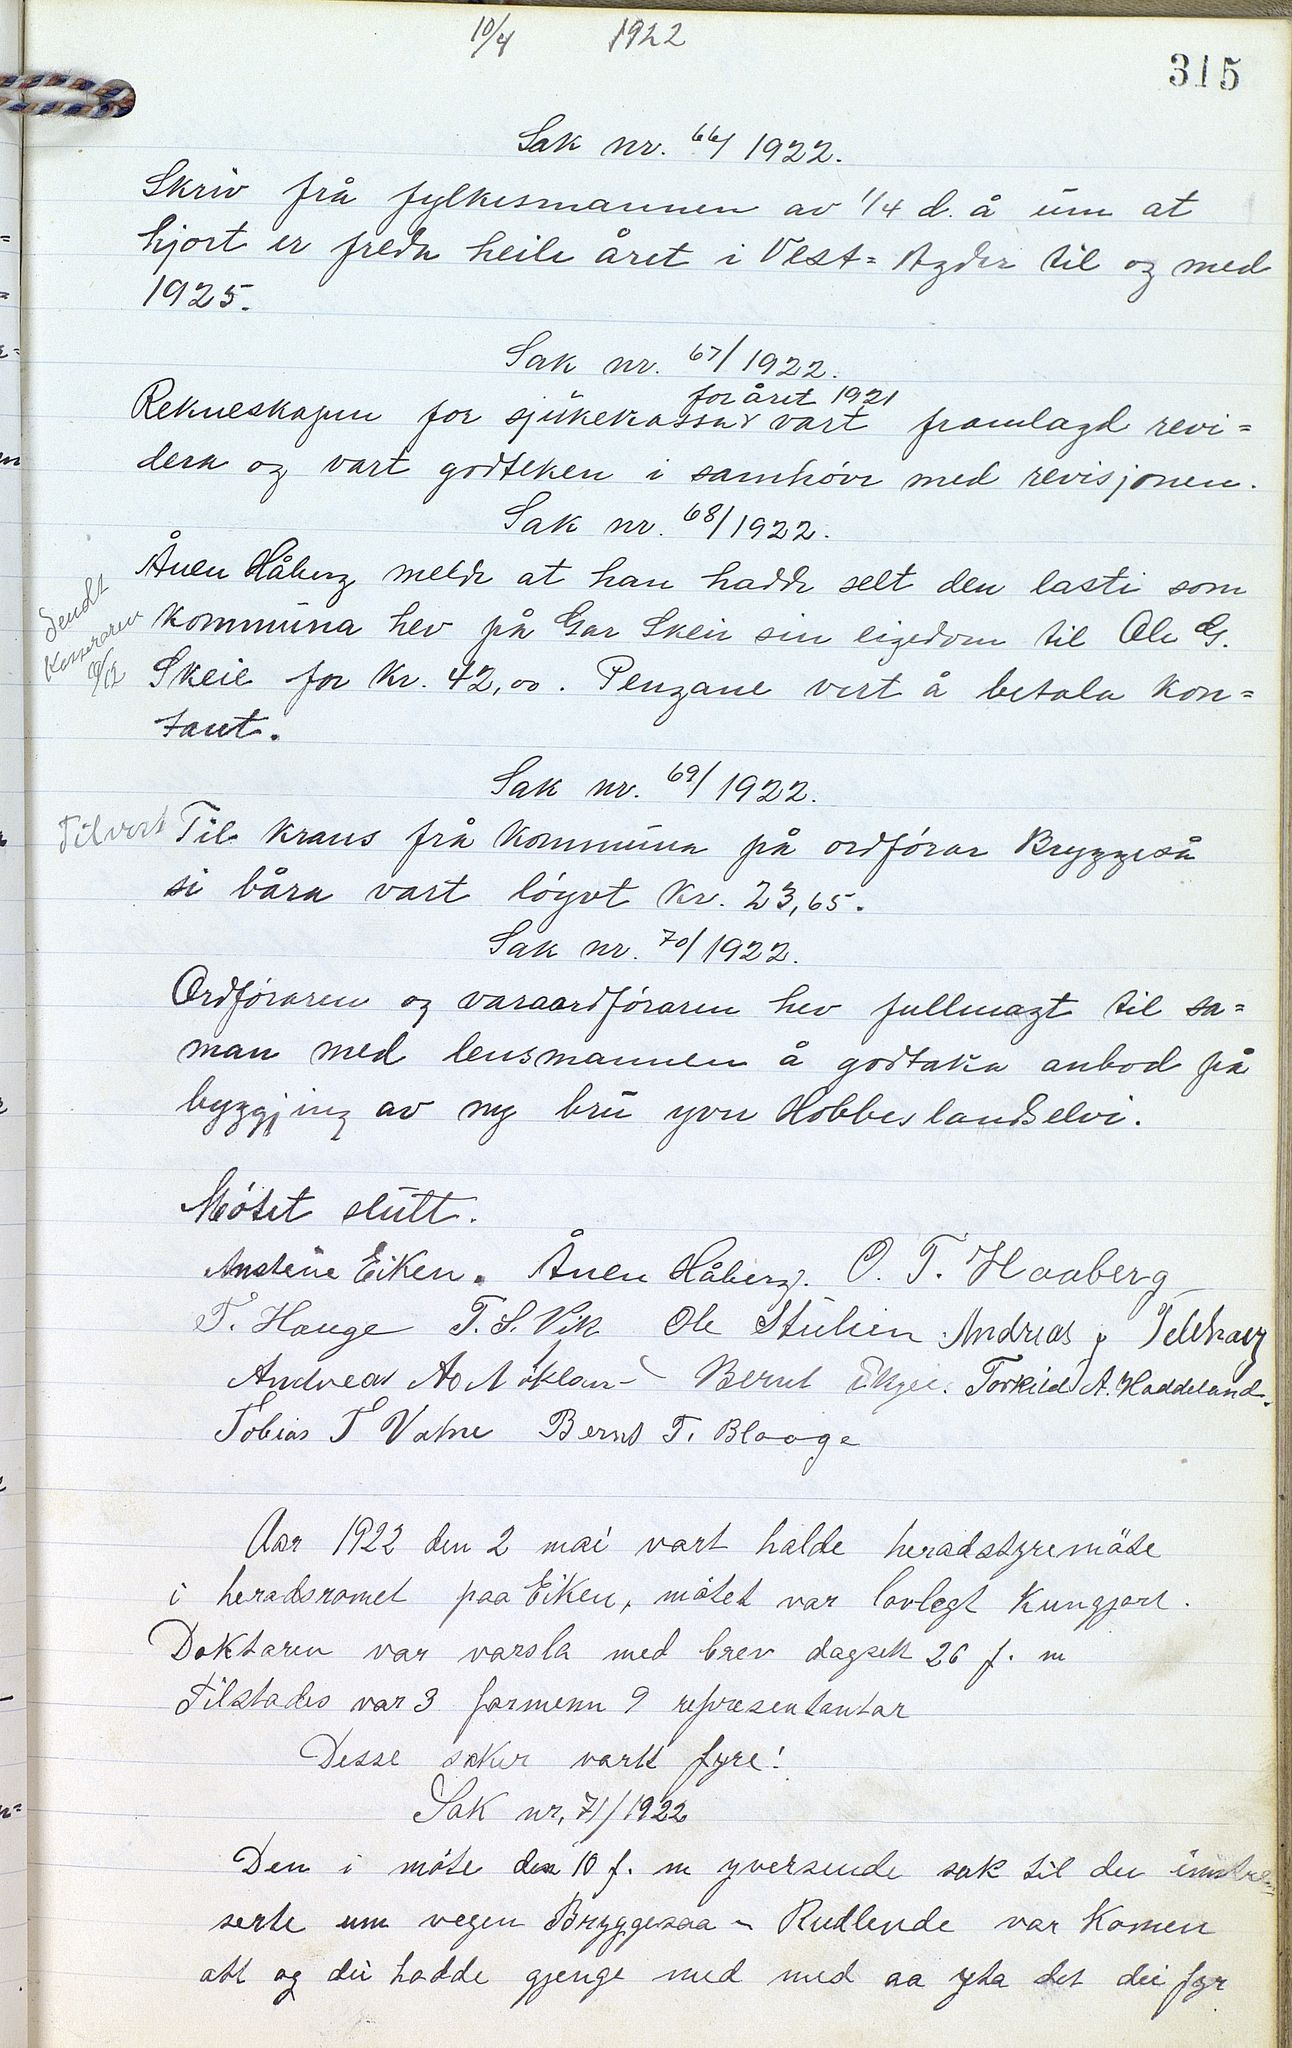 10/4 1922
315
Sak nr. 66/1922.
Skriv frå fylkesmannen av 1/4 d. å um at
hjort er freda heile året i Vest-Agder til og med
1925.
Sak nr. 67/1922.
for året 1921
Rekneskapen for sjukekassa vart framlagd revi=
dera og vart godteken i samhøve med revisjonen.
Sak nr. 68/1922.
Ånen Håberg melde at han hadde selt den lasti som
Sendt
kasseraren
kommuna hev på Gar Skeie sin eigedom til Ole G.
Skeie for kr. 42,00. Pengane vert å betala kon=
tant.
Sak nr. 69/1922.
Tilvert
Til krans frå kommuna på ordførar Bryggeså
si båra vart løyvt kr. 23,65.
Sak nr. 70/1922.
Ordføraren og varaordføraren hev fullmagt til sa=
man med lensmannen å godtaka anbod på
byggjing av ny bru yver Hobbeslandselvi.
Møtet slutt.
Anstein Eiken. Ånen Håberg. O. T. Haaberg
T. Hauge T. S. Vik Ole Stulien Andreas
Andreas Bernt Torkild A. Haddeland.
Tobias T Vatne Bernt T. Blaage
Aar 1922 den 2 mai vart halde heradstyremöte
i heradsromet paa Eiken, mötet var lovlegt kungjort.
Doktaren var varsla med brev dagsett 26 f. m
Tilstades var 3 formenn 9 repræsentantar
Desse saker vart fyre!
Sak nr, 71/1922
Den i möte den 10 f. m yversende sak til dei intere=
serte um vegen Bryggesaa - Rudlende var komen
att og dei hadde gjenge med med aa yta det dei fyr